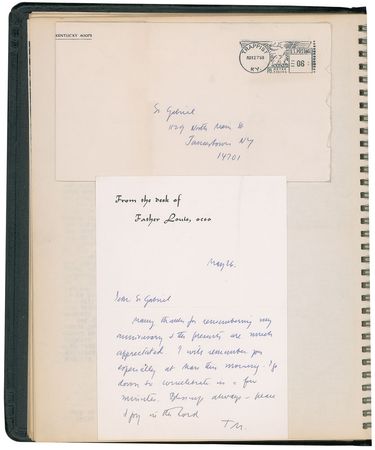 KENTUCKY 40073
TRAPPIST
KY.
U.S. POSTAGE
06
Sr Gabriel
1129 North Main St
Jamestown NY
14701
From the desk of
Father Louis, ocso
May 26.
Dear Sr Gabriel
Many thanks for remembering my
anniversary & the presents are much
appreciated. I will remember you
especially at Mass this morning. I go
down to concelebrate in a few
minutes. Blessings always - peace
& joy in the Lord
TM